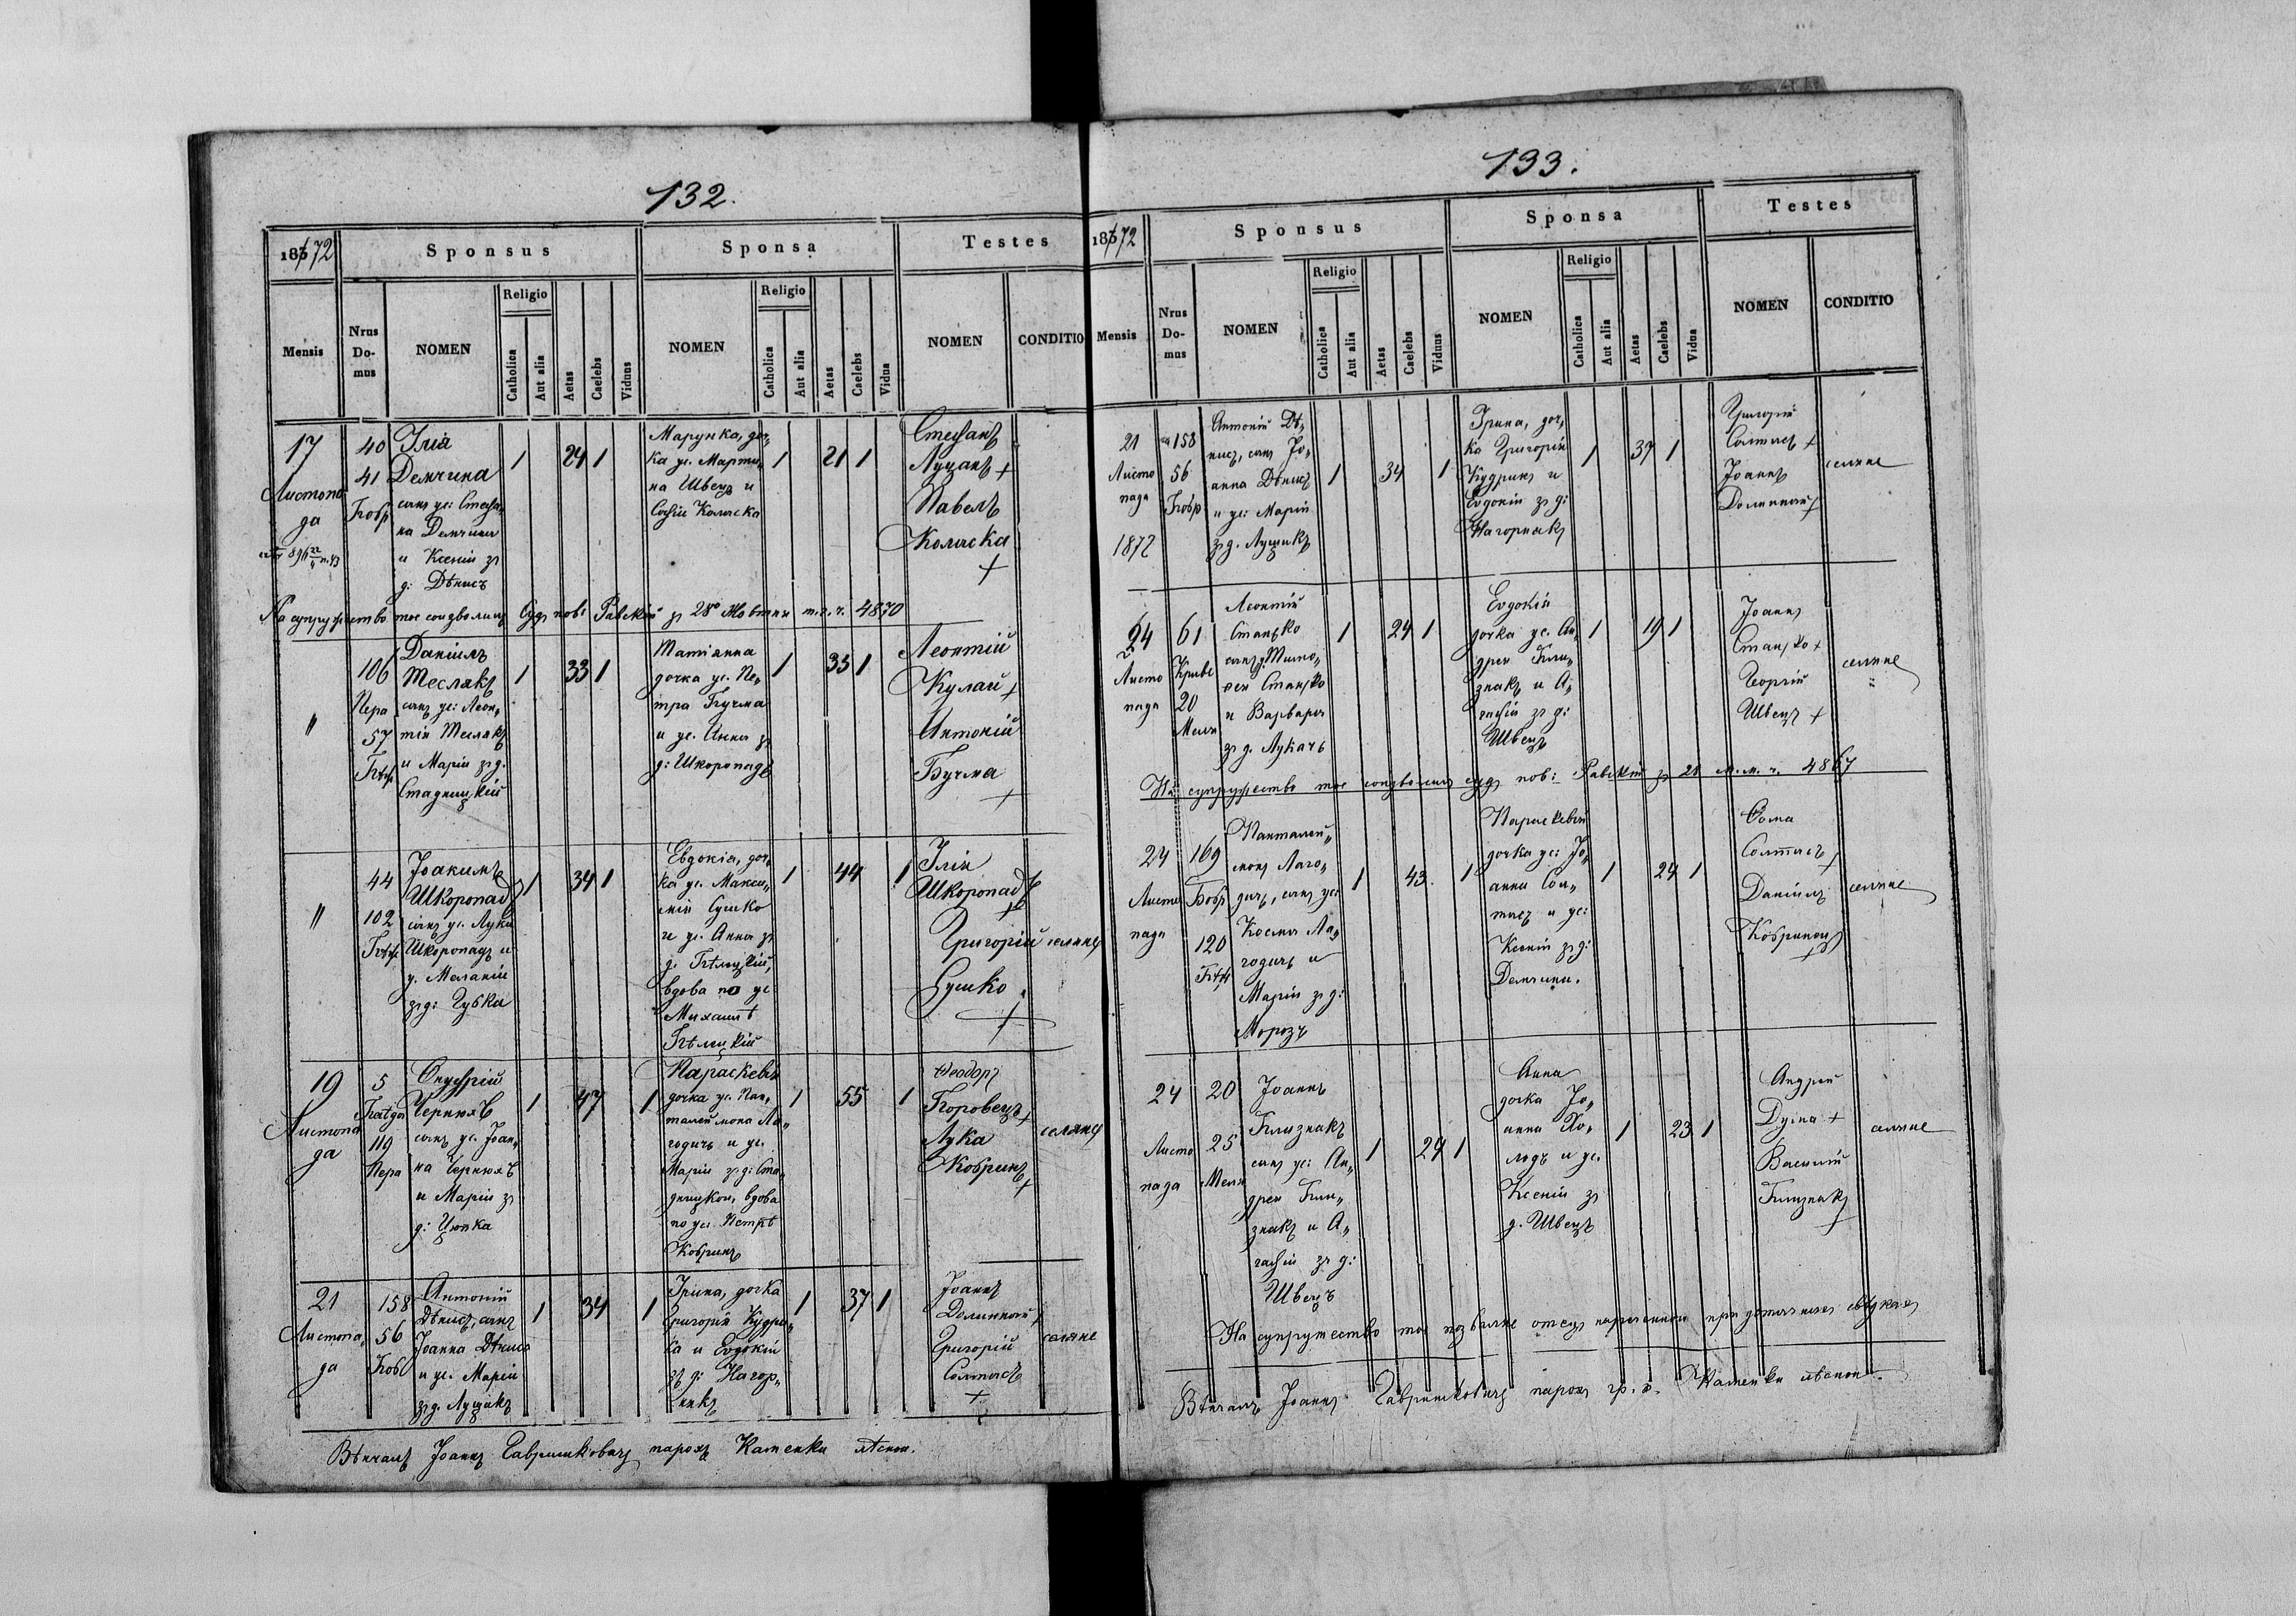 132.
183/72
Sponsus
Sponsa
Testes
Mensis
Nrus Domus
NOMEN
Religio
Catholica
Aut alia
Aetas
Caelebs
Viduus
NOMEN
Religio
Catholica
Aut alia
Aetas
Caelebs
Vidua
NOMEN
CONDITIO
17
Листопа
да
40
41
Бобр
Ілія
Демчина
сынъ ус: Стефа„
на Демчина
и Ксеніи зъ
д: Дѣнисъ
1 24 1
Марунка, доч„
ка ус. Марти„
на Швецъ и
Софіи Коляска
1 21 1
Стефанъ
Луцанъ +
Павелъ
Коляска
+
На супружество тое соизволилъ Судъ пов: Равскій зъ 28го Жовтня т. г. ч. 4870
"
106
Пера
57
Даніилъ
Теслякъ
сынъ ус: Леон„
тія Теслякъ
и Маріи зъ д.
Стадницкій
1 33 1
Матіанна
дочка ус. Пе„
тра Бучма
и ус. Анны зъ
д: Шкоропадъ
1 33 1
Леонтій
Кулай +
Антоній
Бучма
+
"
44
102
Іоакимъ
Шкоропадъ
сынъ ус. Луки
Шкоропадъ и
у. Меланіи
зъ д: Губка
1 34 1
Евдокіа, доч„
ка ус. Макси„
міи Сушко
и ус. Анны зъ
д: Бѣлицкій,
вдова по ус
Михаилѣ
Бѣлицкій
1 44 1
Ілія
Шкоропадъ
+
Григорій
Сушко
+
селяне
19
Листопа
да
5
119
Пера
Онуфрій
Чернюхъ
сынъ ус. Іоан„
на Чернюхъ
и Маріи зъ
д: Цюпка
1 47 1
Параскевія
дочка ус. Пан„
талеймона Ла„
годичъ и ус.
Маріи зъ д: Ста„
дницкои, вдова
по ус. Петрѣ
Кобринъ
1 55 1
Ѳеодоръ
Боровецъ +
Лука
Кобринъ
+
селяне
21
Листопа
да
158
56
Боб
Антоній
Дѣнисъ, сынъ
Іоанна Дѣнисъ
и ус. Маріи
зъ д. Лущикъ
1 34 1
Ірина, дочка
Григорія Кудри„
ка и Евдокіи
зъ д: Нагор„
никъ
1 37 1
Іоаннъ
Долинный +
Григорій
Солтысъ
+
селяне
Вѣнчалъ Іоаннъ Гавришкевичъ парохъ Каменки лѣснои.
133.
183/72
Sponsus
Sponsa
Testes
Mensis
Nrus Domus
NOMEN
Religio
Catholica
Aut alia
Aetas
Caelebs
Viduus
NOMEN
Religio
Catholica
Aut alia
Aetas
Caelebs
Vidua
NOMEN
CONDITIO
21
Листо
пада
1872
158
56
Бобр
Антоній Дѣ„
нисъ, сынъ Іо„
анна Дѣнисъ
и ус: Маріи
зъ д. Лущикъ
1 34 1
Ірина, доч„
ка Григорія
Кудрикъ и
Евдокіи зъ д:
Нагорнякъ
1 37 1
Григорій
Солтысъ +
Іоаннъ
Долинный +
селяне
24
Листо
пада
61
Криве
20
Мели
Леонтій
Станько
сынъ у. Тимо„
ѳея Станько
и Варвары
зъ д. Лукачъ
1 24 1
Евдокія
дочка ус. Ан„
дрея Близ„
знакъ и А„
гафіи зъ д:
Швецъ
1 19 1
Іоаннъ
Станько +
Георгій
Швецъ +
селяне
"
На супружество тое соизволилъ судъ пов: Равскій зъ 28 м.м. ч. 4867
24
Листо
пада
169
Бобр
120
Панталей„
монъ Лаго„
дичъ, сынъ ус:
Косьмы Ла„
годичъ и
Маріи зъ д:
Морозъ
1 43 1
Параскевія
дочка ус: Іо„
анна Сол„
тысъ и ус:
Ксеніи зъ д:
Демчина.
1 24 1
Ѳома
Солтысъ
+
Даніилъ
Кобринъ
+
селяне
24
Листо
пада
20
25
Мели
Іоаннъ
Близнакъ
сынъ ус: Ан„
дрея Бли„
знакъ и А„
гафіи зъ д:
Швецъ
1 24 1
Анна
дочка Іо„
анна Хо„
лодъ и ус.
Ксеніи зъ
д. Швецъ
1 23 1
Андрей
Дума +
Василій
Близнакъ
+
селяне
На супружество тое позваляе отецъ нареченнои при дотычныхъ свѣдкахъ
Вѣнчалъ Іоаннъ Гавришкевичъ парохъ гр. о. Каменки лѣснои.